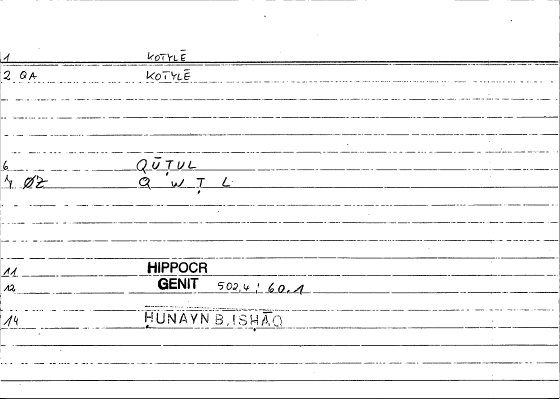 1 KOTYLĒ
2 QA KOTYLĒ
6 QŪṬUL
Q W Ṭ L
11 HIPPOCR
12 GENIT 502,4 ; 60.1
14 ḤUNAYN B. ISḤĀQ